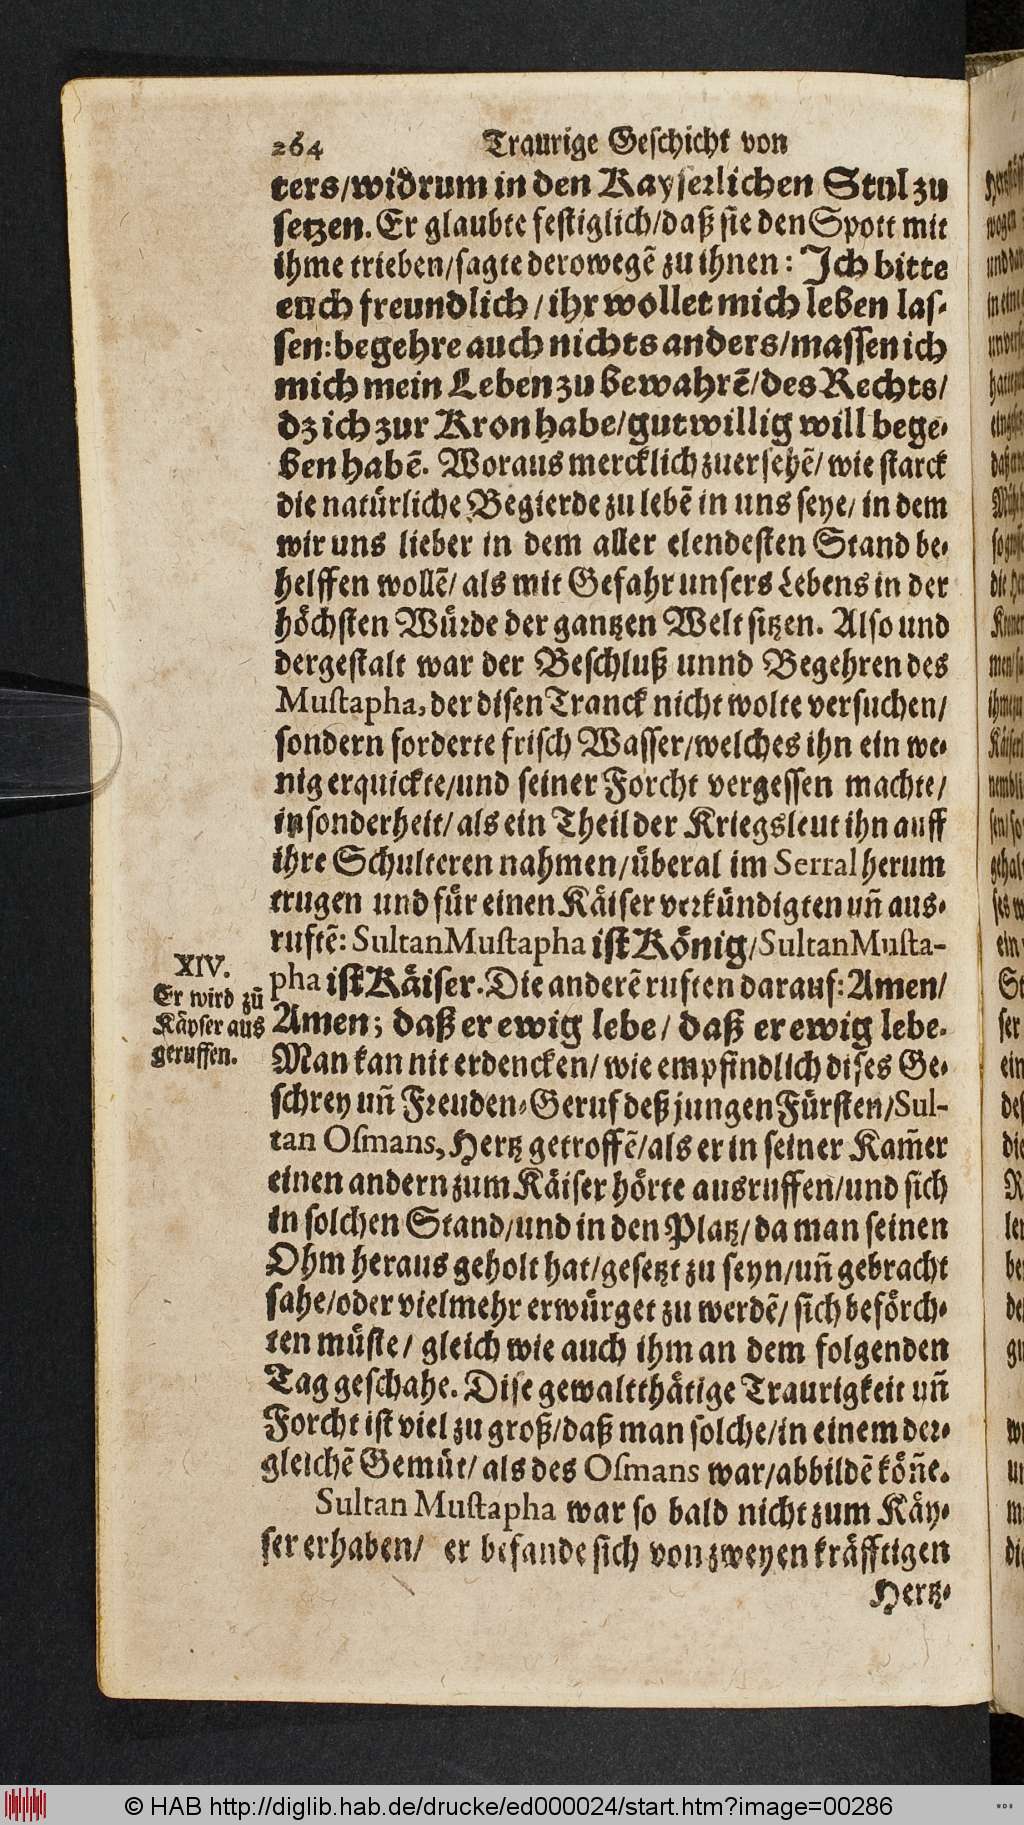 264 Traurige Geschicht von
ters/widrum in den Kayserlichen Stul zu
setzen. Er glaubte festiglich/daß sie den Spott mit
ihme trieben/sagte derowegẽ zu ihnen: Ich bitte
euch freundlich/ihr wollet mich leben las-
sen: begehre auch nichts anders/massen ich
mich mein Leben zu bewahrẽ/des Rechts/
dz ich zur Kron habe/gutwillig will bege-
ben habẽ. Woraus mercklich zuersehẽ/wie starck
die natürliche Begierde zu lebẽ in uns seye/in dem
wir uns lieber in dem aller elendesten Stand be-
helffen wollẽ/als mit Gefahr unsers Lebens in der
höchsten Würde der gantzen Welt sitzen. Also und
dergestalt war der Beschluß unnd Begehren des
Mustapha, der disen Tranck nicht wolte versuchen/
sondern forderte frisch Wasser/welches ihn ein we-
nig erquickte/und seiner Forcht vergessen machte/
insonderheit/als ein Theil der Kriegsleut ihn auff
ihre Schulteren nahmen/überal im Serral herum
trugen und für einen Käiser verkündigten uñ aus-
ruftẽ: Sultan Mustapha ist König/Sultan Musta-
pha ist Käiser. Die anderẽ ruften darauf: Amen/
Amen; daß er ewig lebe/daß er ewig lebe.
Man kan nit erdencken/wie empfindlich dises Ge-
schrey uñ Freuden-Geruf deß jungen Fürsten/Sul-
tan Osmans, Hertz getroffẽ/als er in seiner Kam̃er
einen andern zum Käiser hörte ausruffen/und sich
in solchen Stand/und in den Platz/da man seinen
Ohm heraus geholt hat/gesetzt zu seyn/uñ gebracht
sahe/oder vielmehr erwürget zu werdẽ/sich beförch-
ten müste/gleich wie auch ihm an dem folgenden
Tag geschahe. Dise gewaltthätige Traurigkeit uñ
Forcht ist viel zu groß/daß man solche/in einem der-
gleichẽ Gemüt/als des Osmans war/abbildẽ köñe.
Sultan Mustapha war so bald nicht zum Käy-
ser erhaben/er befande sich von zweyen kräfftigen
Hertz-
XIV.
Er wird zũ
Käyser aus
geruffen.
© HAB http://diglib.hab.de/drucke/ed000024/start.htm?image=00286